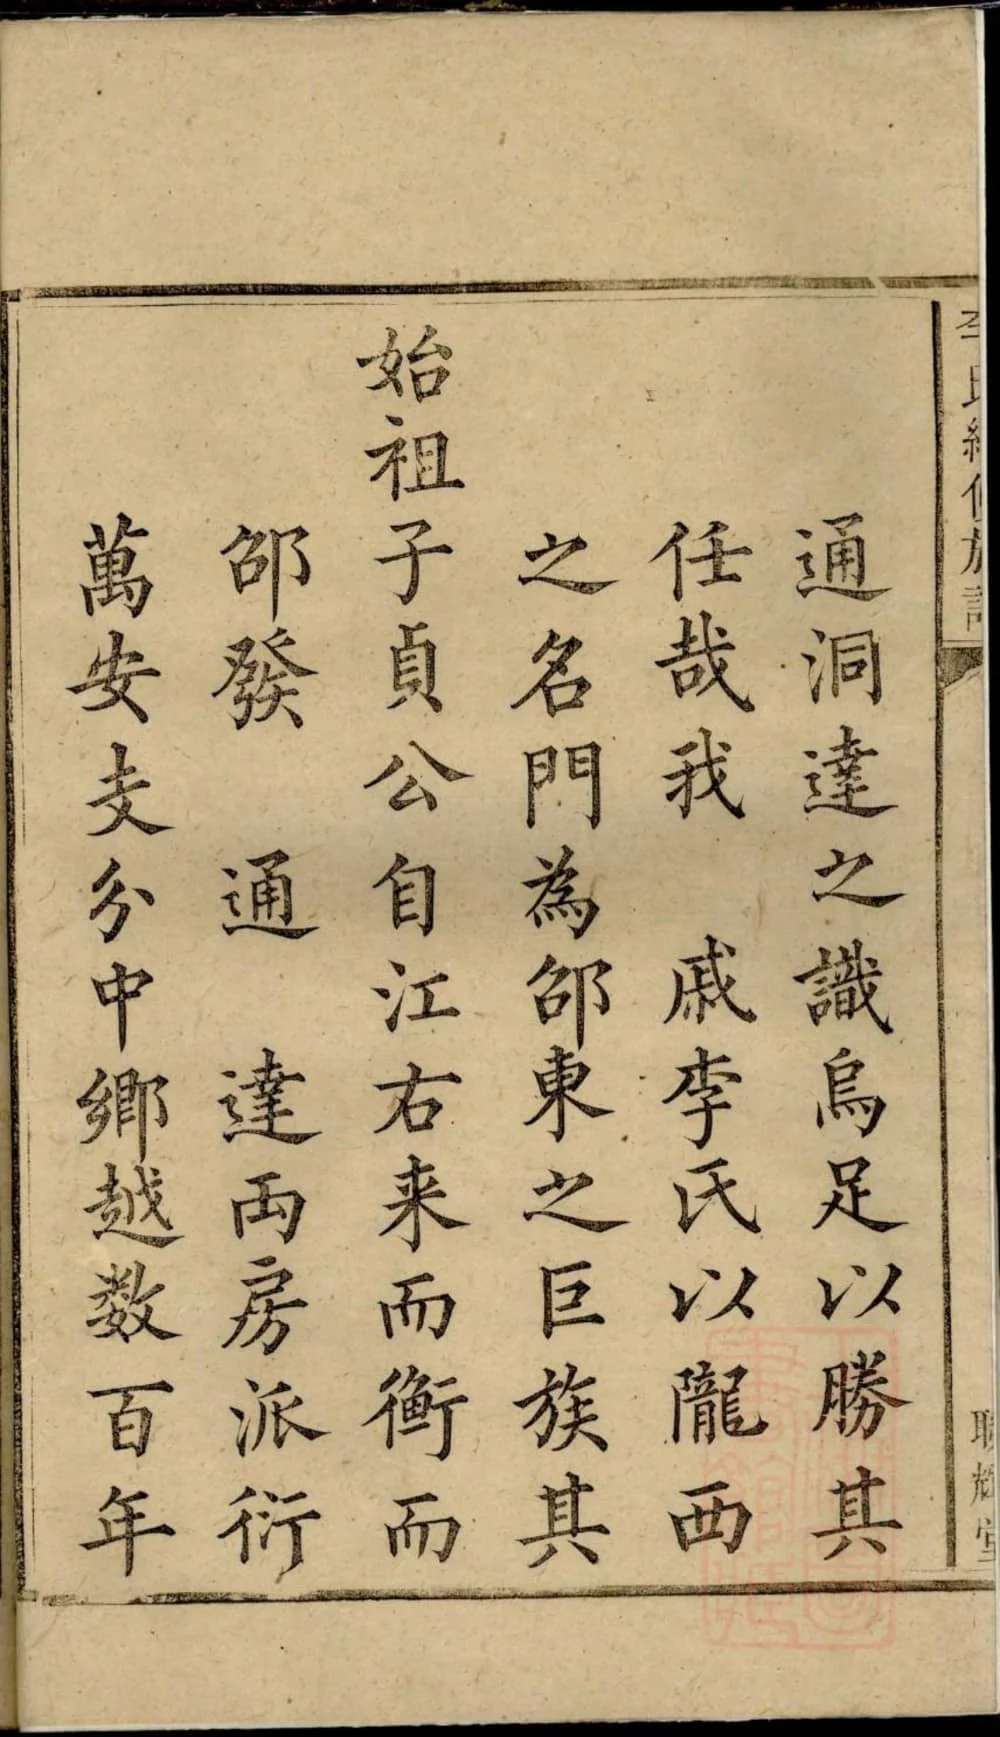 李氏續修族譜
聯輝堂
通洞達之識烏足以勝其
任哉我 戚李氏以隴西
之名門為邵東之巨族其
始祖子貞公自江右来而衡而
邵發 通 達両房派衍
萬安支分中鄉越数百年